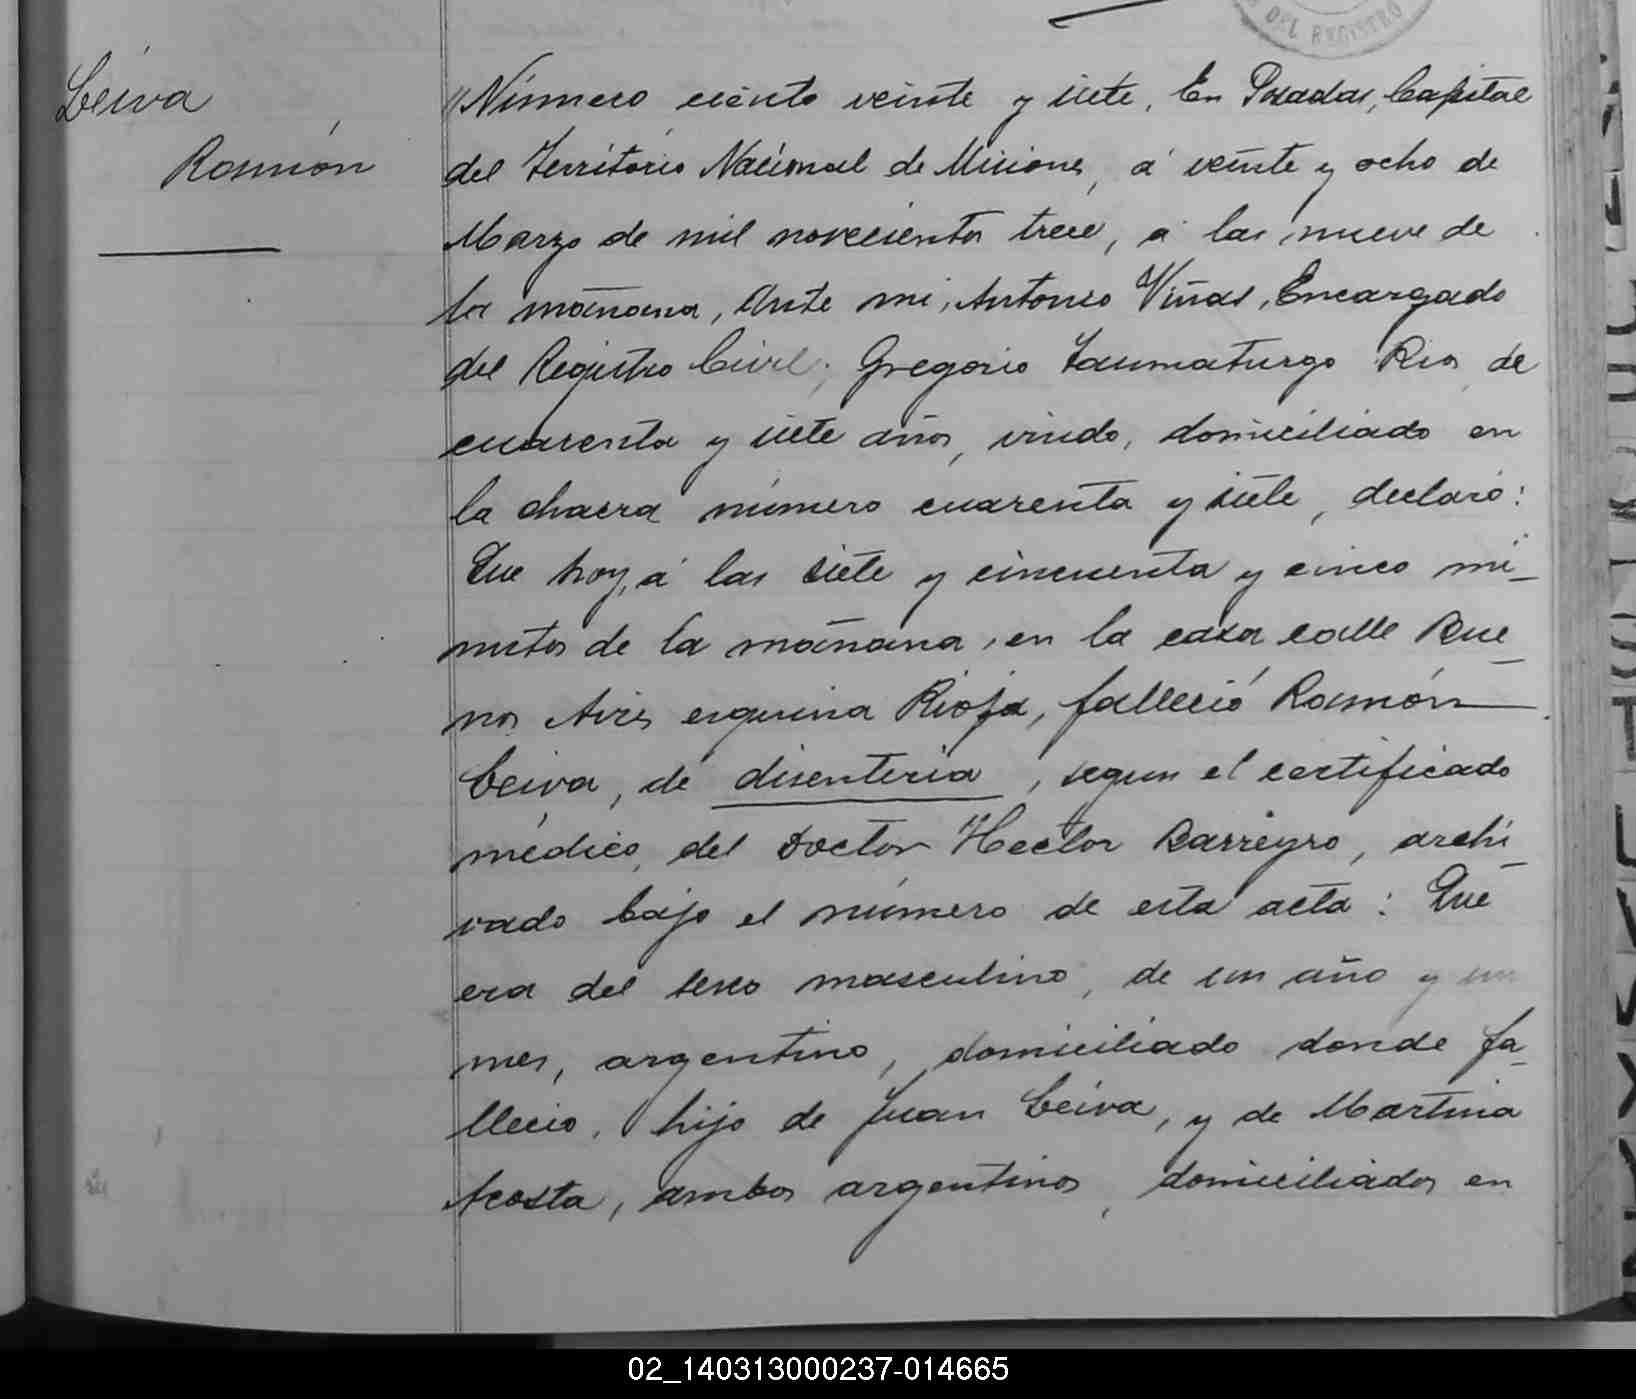 DEL REGISTRO
Leiva
Ramón
"Número ciento veinte y siete, En Posadas, Capital
del Territorio Nacional de Misiones, á veinte y ocho de
Marzo de mil novecientos trece, á las nueve de
la mañana, Ante mi, Antonio Viñas, Encargado
del Registro Civil; Gregorio Taumaturgo Rios de
cuarenta y siete años, viudo, domiciliado en
la chacra número cuarenta y siete, declaró:
Que hoy, á las siete y cincuenta y cinco mi-
nutos de la mañana, en la casa calle Bue-
nos Aires esquina Rioja, falleció Ramón
Leiva, de disenteria, segun el certificado
médico, del Doctor Hector Barreyro, archi-
vado bajo el número de esta acta: Que
era del sexo masculino, de un año y un
mes, argentino, domiciliado donde fa-
lleció, hijo de Juan Leiva, y de Martina
Acosta, ambos argentinos, domiciliados en
02_140313000237-014665